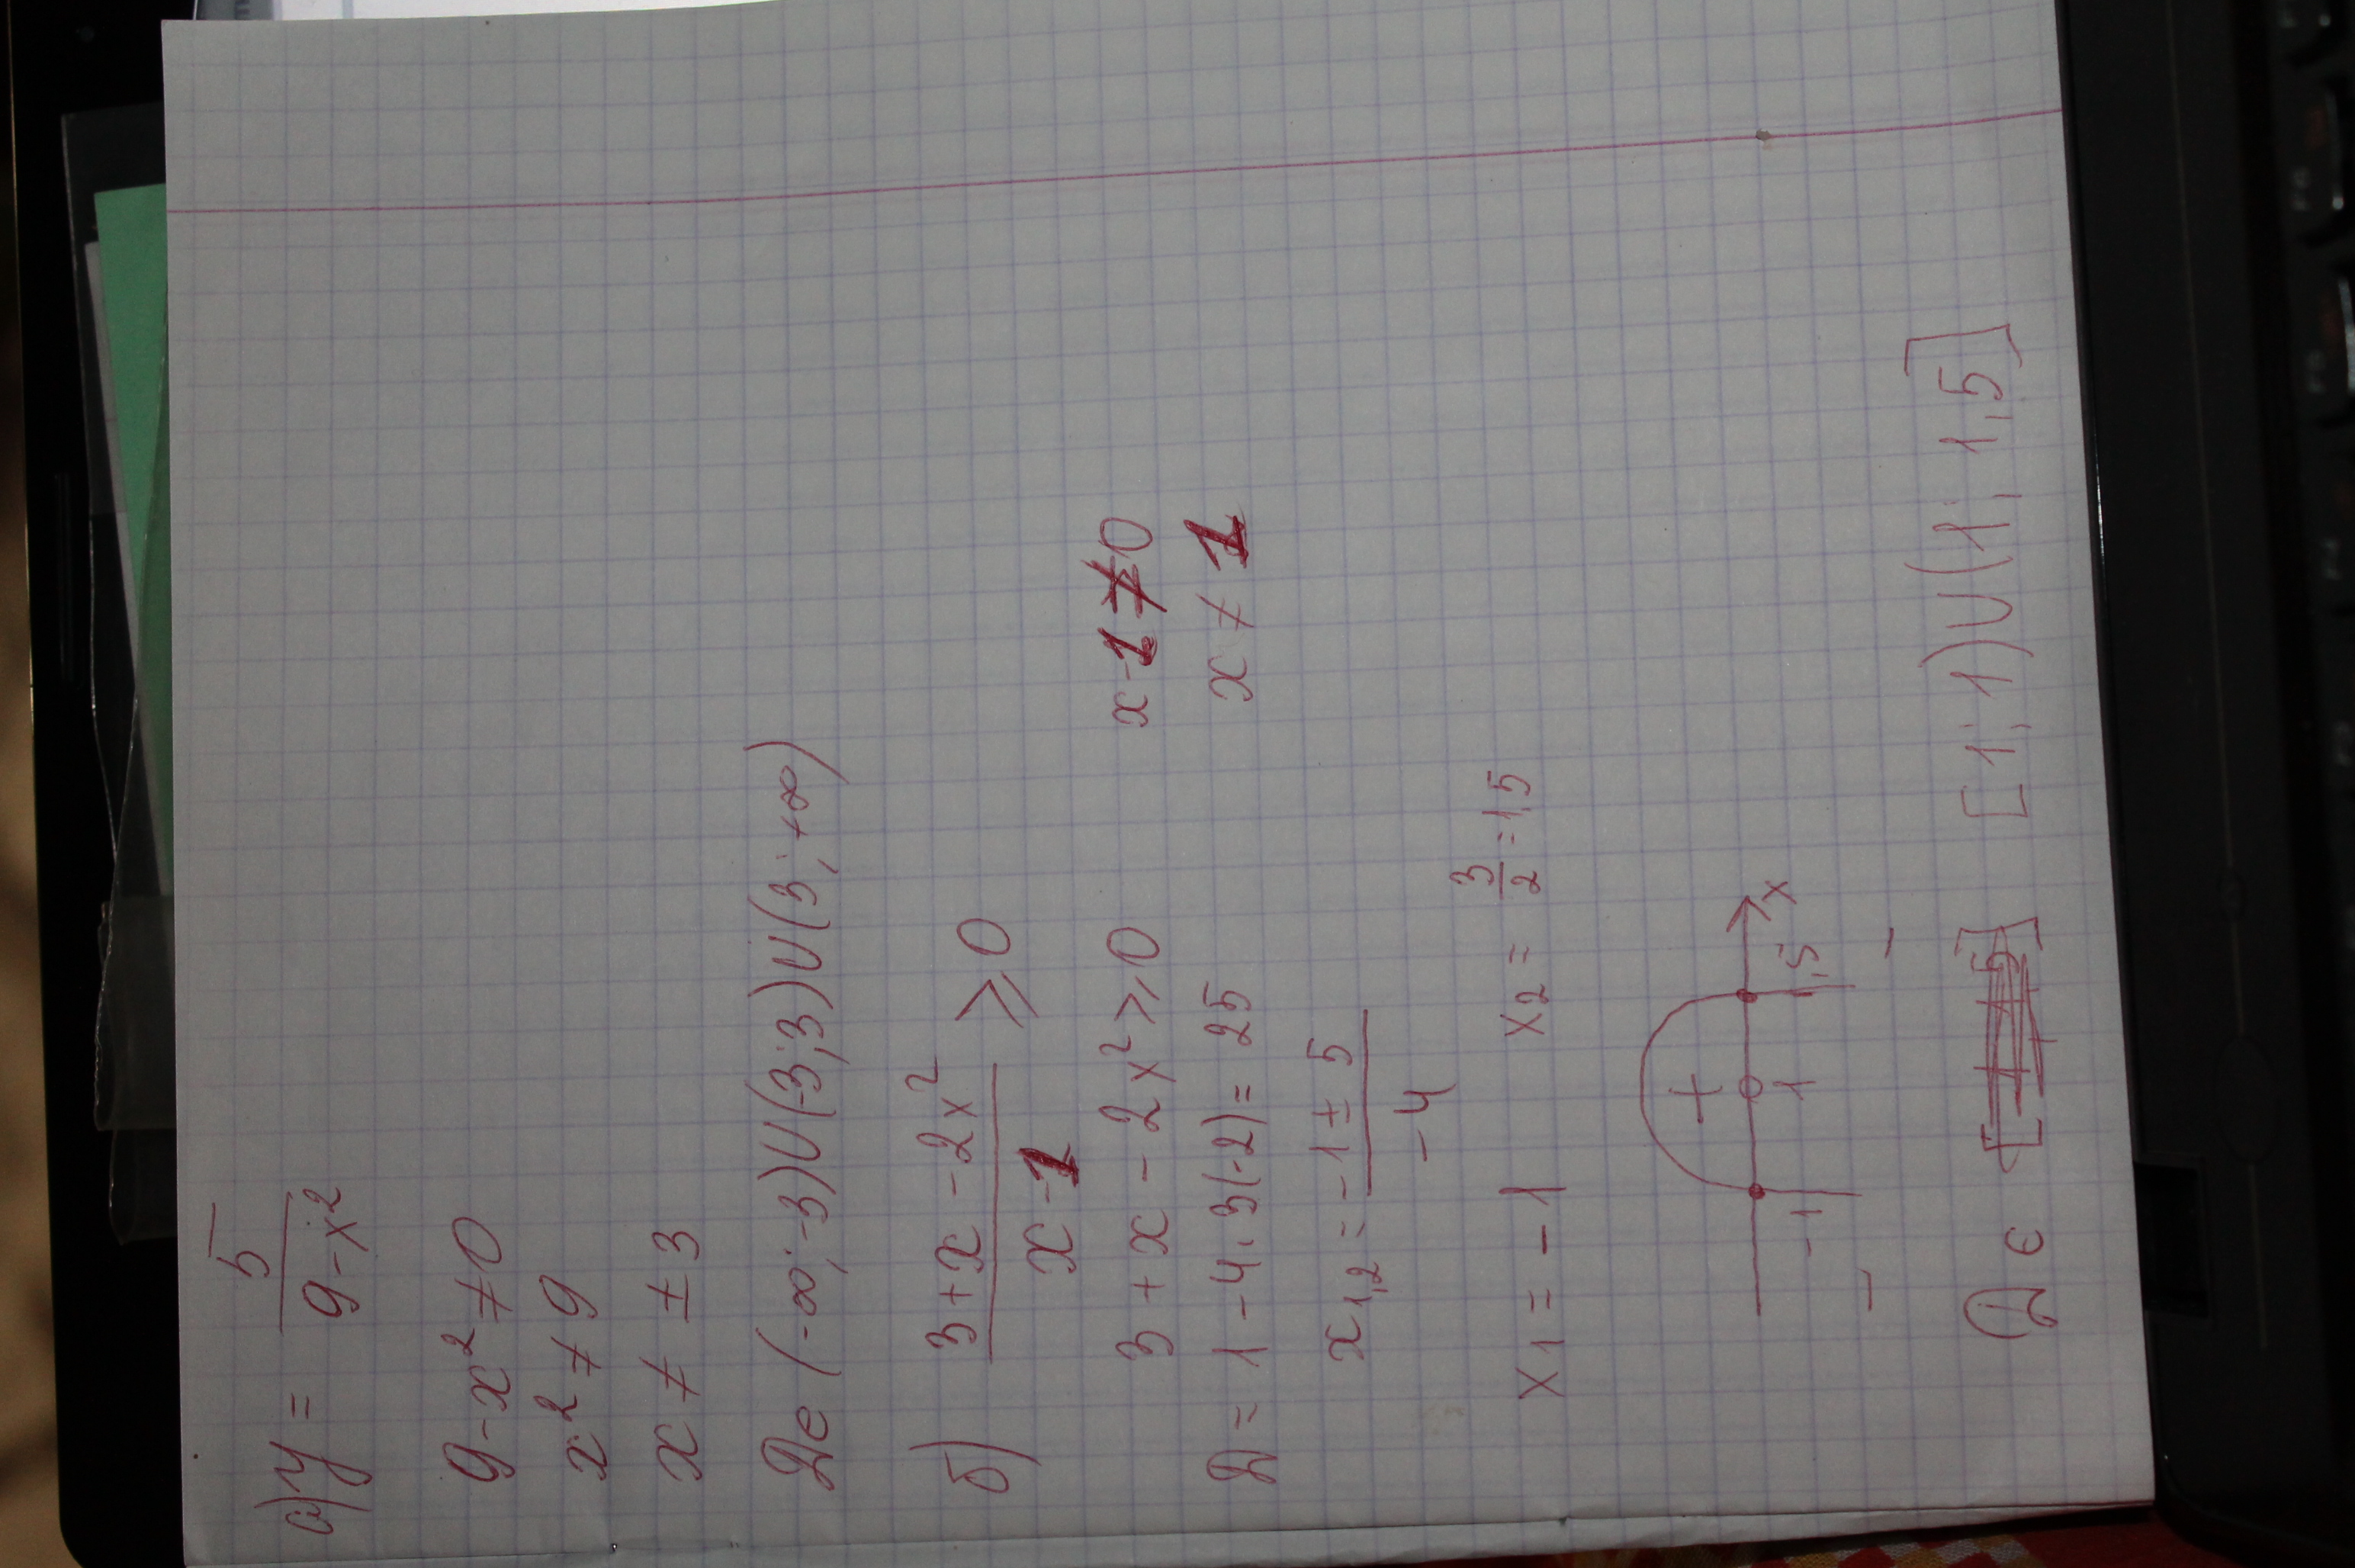 а) y = 5/(9-x²)
9-x² ≠ 0
x² ≠ 9
x ≠ ± 3
Д є (-∞; -3)U(-3;3)U(3; +∞)
б) (3+x-2x²)/(x-1) ⩾ 0
3+x-2x² ⩾ 0 x-1 ≠ 0
Д = 1-4·3(-2) = 25 x ≠ 1
x1,2 = (-1 ± 5)/-4
x1 = -1 x2 = 3/2 = 1,5
+
-1 1 1,5 x
- -
Д є [1; 1)U(1; 1,5]